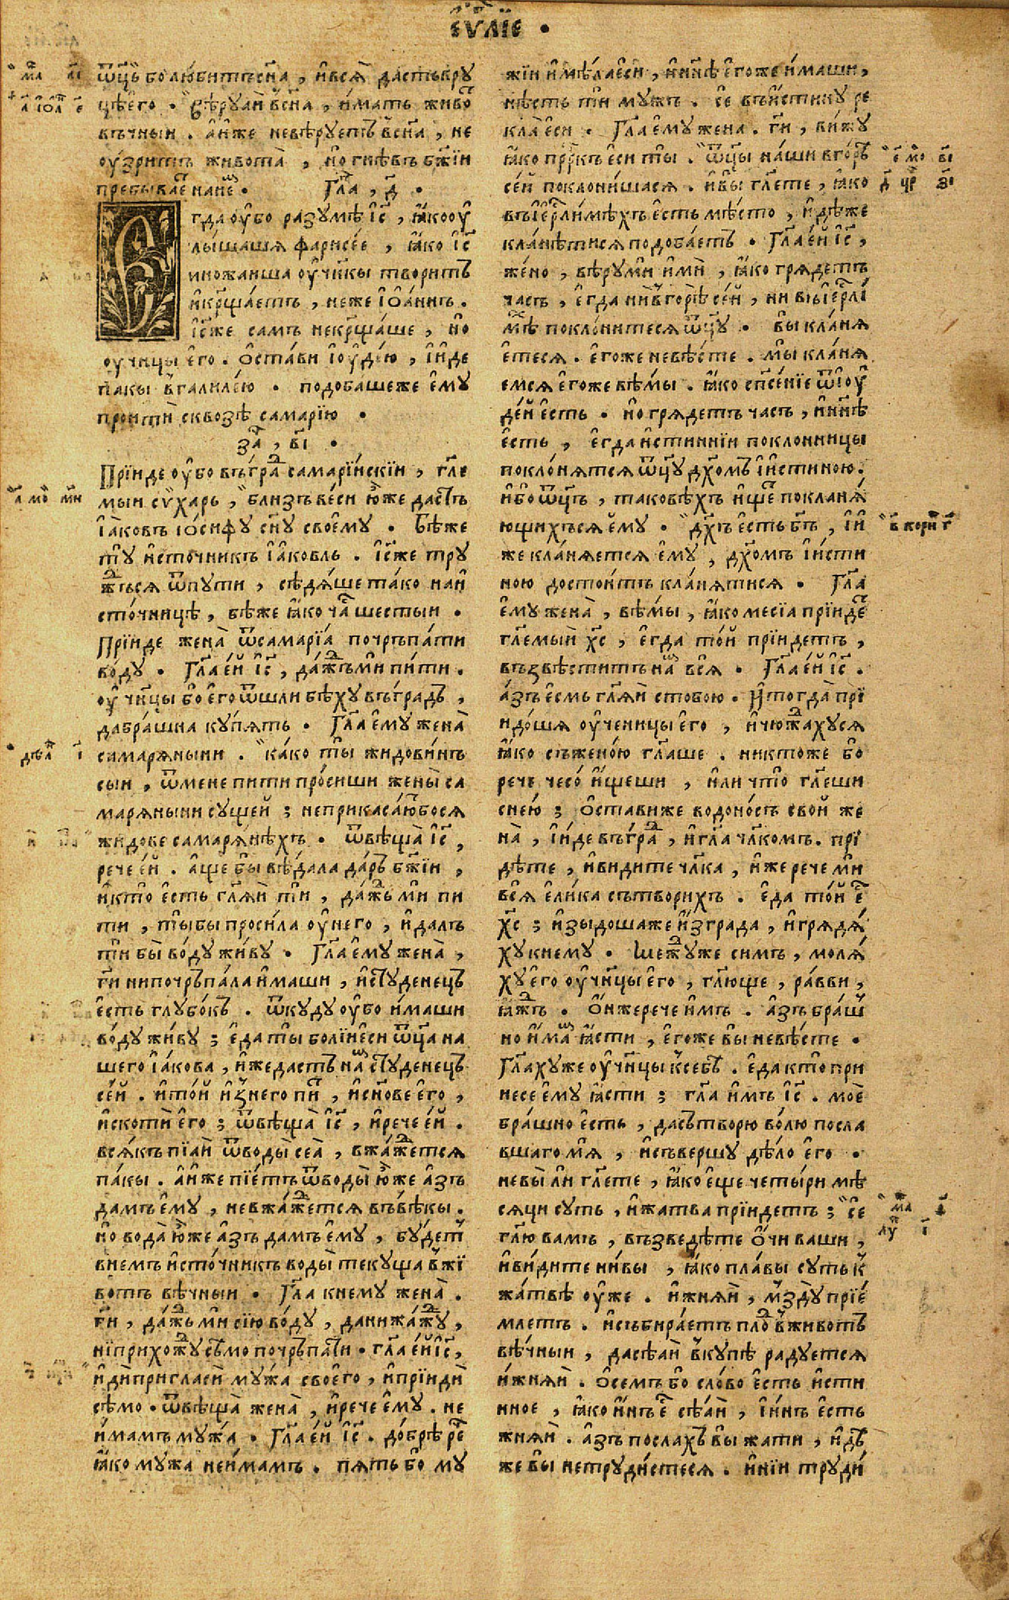 єѵⷢ҇лїе •
ѿц҃ъ бо любитъ сн҃а , и҆ вся̀ дастъ в ру
цѣ е҆го . Вѣруаи в сн҃а , и҆мать живо
вѣчныи . а҆ и҆же невѣруетъ в сн҃а , не
оу҆зритъ живота̀ , но гнѣвъ бж҃їи
пребываеⷮ на неⷨ • Глⷡ҇а , д҃ •
Егда оу҆бо разумѣ і҆с҃ , ꙗ҆ко оу҆
слышаша фарисѐе , ꙗ҆ко і҆с҃
множаиша оу҆чн҃кы творитъ
и҆ крщ҃аетъ , неже і҆ѡа́ннъ .
і҆с҃ же самъ не крщ҃аше , но
оу҆чн҃цы е҆го . ѡ҆ста́ви і҆ю҆де́ю , и҆ и҆де
пакы в галиле́ю . подобаше же е҆мꙋ
проитѝ сквозѣ самарїю .
заⷱ҇ , в҃і •
Прїиде оу҆бо въ граⷣ самарїискїи , гл҃е
мыи сѵха́рь , близъ ве́си ю҆же дастъ
і҆а҆ковъ і҆ѡ́сифу сн҃у своемꙋ . Бѣ же
тꙋ и҆сточникъ і҆а҆ковль . І҆с҃ же трꙋ
жⷣься ѿ пути , сѣдя́ше та́ко на и҆
сто́чницѣ , бѣ же ꙗ҆ко чаⷭ҇ шестыи .
Прїиде жена̀ ѿ самарїа̀ почръпа́ти
во́дꙋ . Гл҃а е҆́й і҆с҃ , да́жⷣь ми пи́ти .
оу҆чн҃цы бо е҆го ѿшли бѣ́хꙋ въ градъ ,
да брашна кꙋпятъ . Гл҃а е҆мꙋ жена̀
самаряныни . ка́ко ты жидови́нъ
сыи , ѿ мене пити про́сиши жены са
маряныни сꙋщей ; неприкаса́ю бося
жидове самаря́нѣхъ . ѿвѣща̀ і҆с҃ ,
рече е҆́й . а҆ще бы вѣ́дала да́ръ бж҃їи ,
и҆ кто есть гл҃яи ти , да́жⷣь ми пи
ти , ты бы проси́ла оу҆ него , и҆ далъ
ти бы во́дꙋ жи́вꙋ . Гл҃а е҆мꙋ жена̀ ,
гн҃и ни почръпала и҆́маши , и҆ стꙋденець
е҆сть глꙋбо́къ . ѿкꙋдꙋ оу҆бо и҆́маши
во́дꙋ жи́вꙋ ; е҆да ты болїи е҆си ѿц҃а на
шего і҆а҆кова , и҆же дастъ наⷨ стꙋденець
се́й . и҆ то́й и҆з него пиⷮ , и҆ сн҃ове е҆го ,
и҆ скоти е҆го ; ѿвѣща̀ і҆с҃ , и҆ рече е҆́й .
вся́къ пїаи ѿ воды сеа̀ , вжа́жⷣется
па́кы . а҆ и҆же пїе́тъ ѿ воды ю҆же а҆зъ
дамъ е҆мꙋ , не вжа́жⷣется въ вѣ́кы .
но вода̀ ю҆же а҆зъ дамъ е҆мꙋ , бꙋдетⷮ
в нем и҆сто́чникъ воды текꙋща в жи
вотъ вѣ́чныи . Гл҃а к немꙋ жена̀ .
гн҃и , да́жⷣь ми сїю во́дꙋ , да ни жа́жⷣꙋ ,
ни прихожⷣꙋ сѣмо почръпати . гл҃а е҆́й і҆с҃ ,
и҆ди пригласи мꙋ́жа своего , и҆ прїиди
сѣмо . ѿвѣща̀ жена̀ , и҆ рече е҆мꙋ . не
и҆мамъ мꙋжа . Гл҃а е҆́й і҆с҃ . до́брѣ реⷱ҇
ꙗ҆ко мꙋжа не и҆мамъ . пять бо мꙋ
жїи и҆мѣла е҆си , и҆ нн҃ѣ е҆гоже и҆маши ,
нѣсть ти мꙋжъ . се въ и҆стинꙋ ре
кла̀ е҆си . Гл҃а е҆мꙋ жена . гн҃и , вижꙋ
ꙗ҆ко прⷪ҇ркъ е҆си ты . ѿц҃ы на́ши в горѣ
се́й поклони́шася . и҆ вы гл҃ете , ꙗ҆ко
въ і҆ерⷭ҇ли́мѣхъ е҆сть мѣ́сто , и҆дѣже
кла́нѣтися подобаетъ . Гл҃а е҆́й і҆с҃ ,
же́но , вѣрꙋ ми и҆ми̂ , ꙗ҆ко грядетъ
часъ , е҆гда ни в горѣ се́й , ни въ і҆ерⷭ҇ли́
мѣ поклонитеся ѿц҃ꙋ . Вы кланя
етеся . е҆гоже не вѣ́сте . мы кланя
емся е҆гоже вѣ́мы . ꙗ҆ко спⷭ҇е́нїе ѿ і҆ю҆
де́й е҆сть . но грядетъ часъ , и҆ нн҃ѣ
е҆сть , е҆гда и҆стиннїи поклонницы
покло́нятся ѿц҃ꙋ дх҃омъ и҆ и҆стиною .
и҆бо ѿц҃ъ , таковѣ́хъ и҆щеⷮ покланя́
ющихъся е҆мꙋ . дх҃ъ есть бг҃ъ , и҆ и҆
же кла́няется е҆мꙋ , дх҃омъ и҆ и҆сти
ною достоитъ кла́нятися . Гл҃а
е҆мꙋ жена̀ , вѣ́мы , ꙗ҆ко месїа прїидеⷮ
гл҃емый хс҃ , е҆гда то́й прїидетъ ,
възвѣститъ наⷨ вся . Гл҃а е҆́й і҆с҃ .
а҆зъ е҆смь гл҃яи с тобою . И҆ тогда̀ прї
идо́ша оу҆ченицы е҆го , и҆ чю́жⷣахꙋся
ꙗ҆ко съ жено́ю гл҃аше . никтоже бо
рече чесо́ и҆щеши , и҆ли что̀ гл҃еши
с не́ю ; ѡ҆стави же водоно́съ сво́й же
на̀ , и҆ и҆де въ граⷣ , и҆ гл҃а чл҃комъ . прї
дѣте , и҆ видите чл҃ка , и҆же рече ми
вся е҆ли́ка сътворихъ . е҆да то́й еⷭ҇
хс҃ ; и҆зыдоша же и҆з града , и҆ грядя́
хꙋ к немꙋ . Ме́жⷣꙋ же симъ , моля́
хꙋ е҆го оу҆чн҃цы е҆го , гл҃юще , ра́вви ,
ꙗ҆жⷣь . Ѻ҆н же рече и҆́мъ . а҆зъ браш
но и҆́маⷨ ꙗ҆́сти , е҆гоже вы не вѣ́сте .
Гл҃ахꙋ же оу҆чн҃цы к себѣ̀ . е҆да кто при
несе е҆мꙋ ꙗ҆́сти ; гл҃а и҆мъ і҆с҃ . моѐ
бра́шно е҆сть , да сътворю во́лю посла
вшаго мя̀ , и҆ съвершꙋ дѣ́ло е҆го .
не вы ли гл҃ете , ꙗ҆ко е҆ще четы́ри мѣ
сяци сꙋть , и҆ жатва прїидетъ ; се
гл҃ю ва́мъ , възведѣте ѻ҆́чи ваши ,
и҆ видите ни́вы , ꙗ҆ко пла́вы сꙋть к
жа́твѣ оу҆же . и҆ жняи , мздꙋ прїе́
млетъ . и҆ събира́етъ плоⷣ в животъ
вѣ́чныи , да сѣаи вкꙋпѣ ра́дꙋется
и҆ жняи . Ѻ҆ семъ бо сло́во есть и҆сти
нное , ꙗ҆ко и҆́нъ еⷭ҇ сѣаи , и҆ и҆́нъ есть
жняи . а҆зъ послахъ вы жати , и҆дѣ
же вы не трꙋди́стеся . и҆нїи трꙋди́